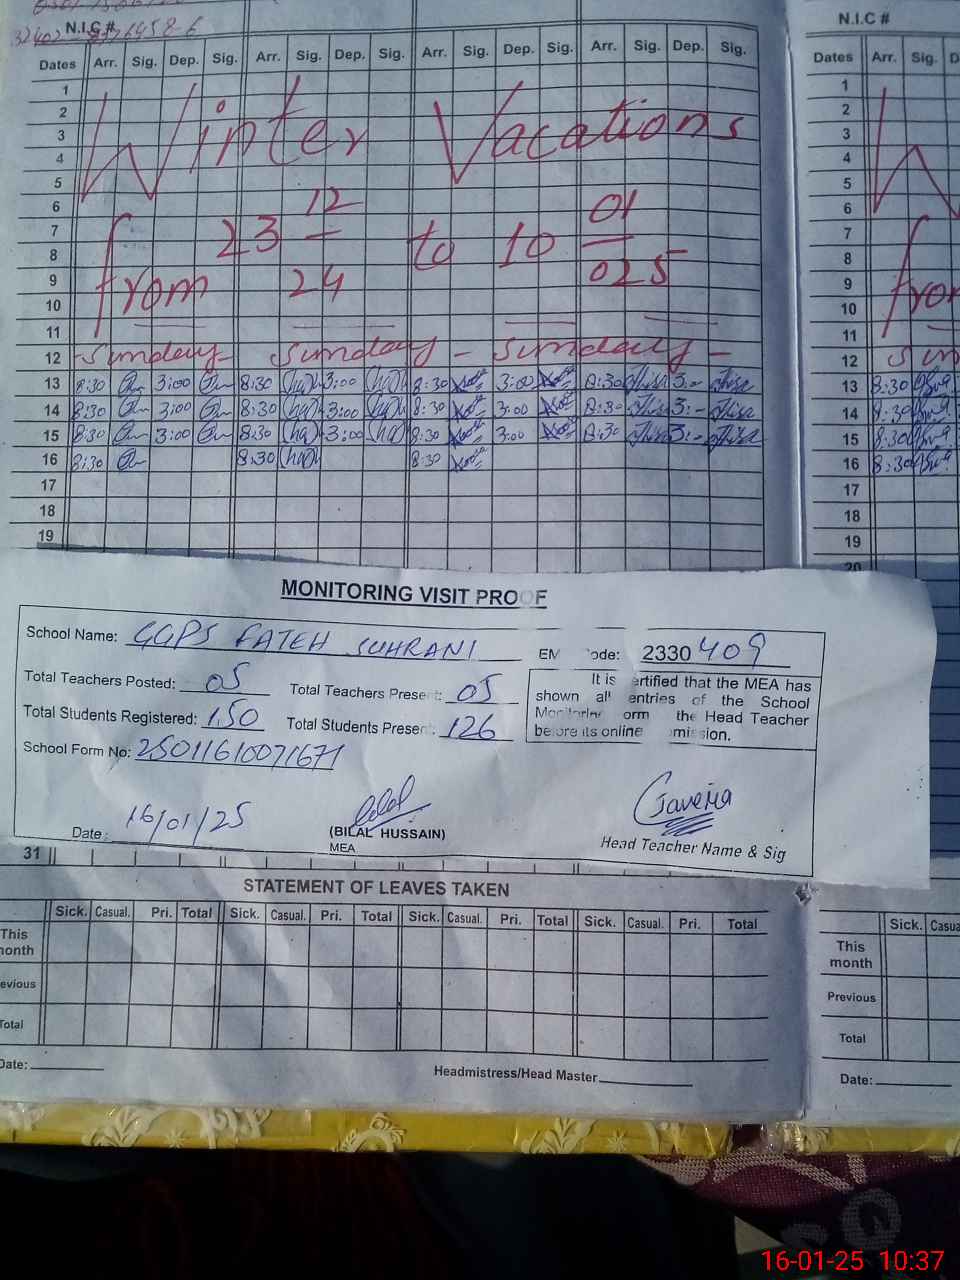 N.I.C #
N.I.C #
Dates Arr. Sig. Dep. Sig. Arr. Sig. Dep. Sig. Arr. Sig. Dep. Sig. Arr. Sig. Dep. Sig.
Dates Arr. Sig.
1
2
3
4
5
6
7
8
9
10
11
12
Winter Vacations
from 23 12/24 to 10 01/025
Sunday - Sunday - Sunday -
13 8:30 3:00 8:30 3:00 8:30 3:00 8:30 3:-
14 8:30 3:00 8:30 3:00 8:30 3:00 8:30 3:-
15 8:30 3:00 8:30 3:00 8:30 3:00 8:30 3:-
16 8:30 8:30 8:30
17
18
19
1
2
3
4
5
6
7
8
9
10
11
12
13 8:30
14 8:30
15 8:30
16 8:30
17
18
19
20
MONITORING VISIT PROOF
School Name: GGPS FATEH SUHRANI
EM ode: 2330409
Total Teachers Posted: 05 Total Teachers Present: 05
Total Students Registered: 150 Total Students Present: 126
School Form No: 25011610071671
It is ertified that the MEA has
shown all entries of the School
Monitoring orm the Head Teacher
before its online mission.
Date: 16/01/25
(BILAL HUSSAIN)
MEA
Javeria
Head Teacher Name & Sig
31
STATEMENT OF LEAVES TAKEN
Sick. Casual. Pri. Total Sick. Casual. Pri. Total Sick. Casual. Pri. Total Sick. Casual. Pri. Total
This
onth
evious
Total
Date:
Headmistress/Head Master
Sick. Casua
This
month
Previous
Total
Date:
16-01-25 10:37